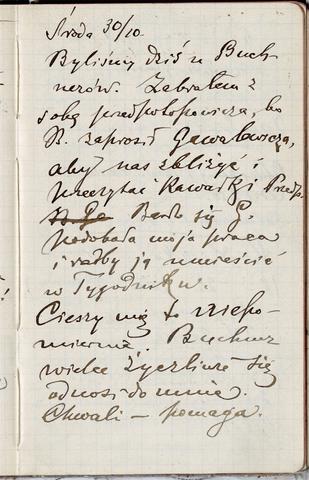 Środa 30/10.
Byliśmy dziś u Buch-
nerów. Zabrałem z
sobą przedpotopowicza, bo
B. zaprosił Gawalewicza,
aby nas zbliżyć i
przeczytać kawałki Przedp.
Bardz się G.
podobała moja praca
i radby ją umieścić
w Tygodniku.
Cieszy mię to niepo-
miernie. Buchner
wielce życzliwie się
odnosi do mnie.
Chwali – pomaga.